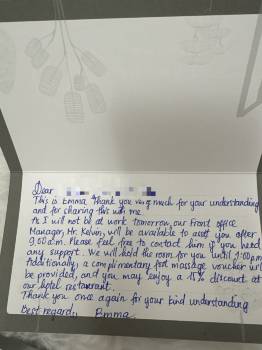 Dear
This is Emma. Thank you very much for your understanding
and for sharing this with me.
As I will not be at work tomorrow, our Front Office
Manager, Mr. Kelvin, will be available to assist you after
9:00a.m. Please feel free to contact him if you need
any support. We will hold the room for you until 1:00pm
Additionally, a complimentary foot massage voucher will
be provided, and you may enjoy a 15% discount at
our hotel restaurant.
Thank you once again for your kind understanding
Best regard,, Emma